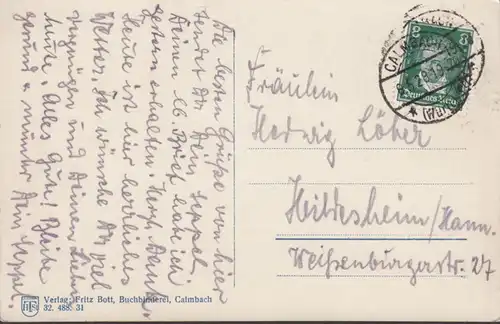 Die besten Grüße von hier
sendet Dir Dein Seppel.
Deinen lb. Brief habe ich
gestern erhalten. Herzl. Dank.
Heute ist hier herrliches
Wetter. Ich wünsche Dir viel
Vergnügen und Deinen Lieben
Alles Gute, Bleibe
gesund & munter Dein Seppel.
8 8
Deutsches Reich
CALMBACH
Fräulein
Hedwig Löher
Hildesheim/Hann.
Weißenburgerstr. 27
Verlag: Fritz Bott, Buchbinderei, Calmbach
32. 488. 31